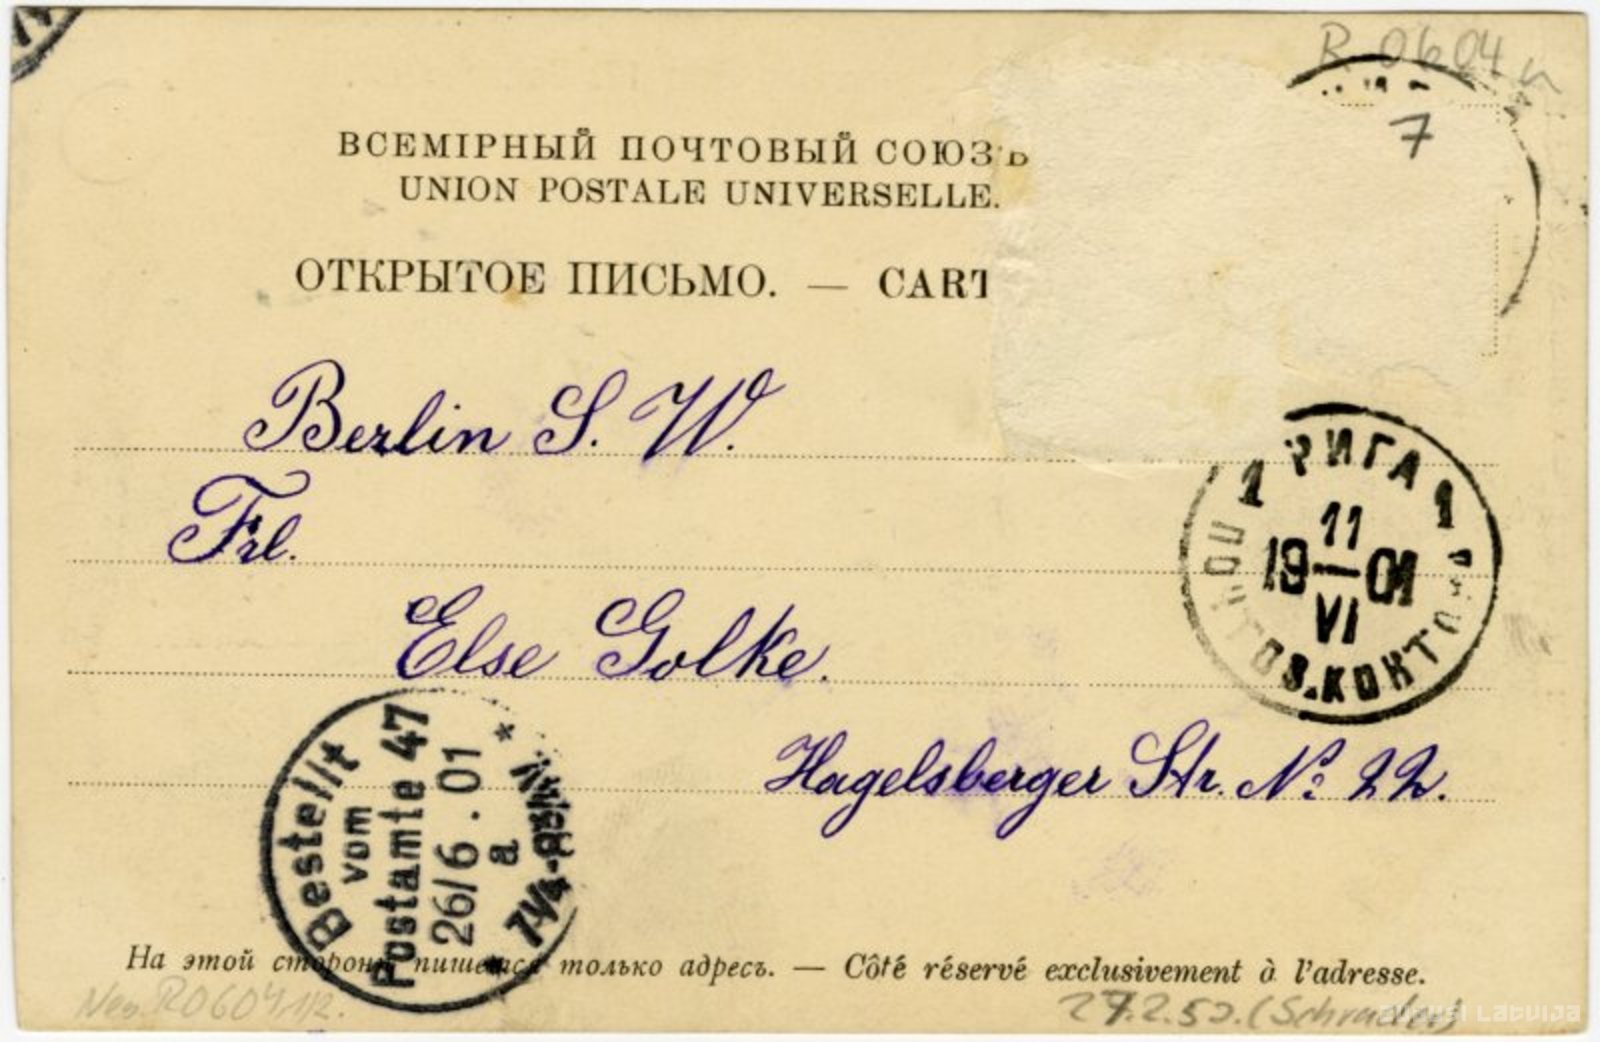 R 0604
7
ВСЕМІРНЫЙ ПОЧТОВЫЙ СОЮЗЪ
UNION POSTALE UNIVERSELLE.
ОТКРЫТОЕ ПИСЬМО. — CART
Berlin S. W.
Frl.
Else Golke.
Hagelsberger Str. No: 22.
1 РИГА 1
11
19—01
VI
ПОЧТОВ. КОНТОРА
Bestellt
vom
Postamte 47
26/6.01
a
7¼-
*
На этой сторонѣ пишется только адресъ. — Côté réservé exclusivement à l'adresse.
R0604 1/2.
27.2.52. (Schrader)
zudusi Latvija